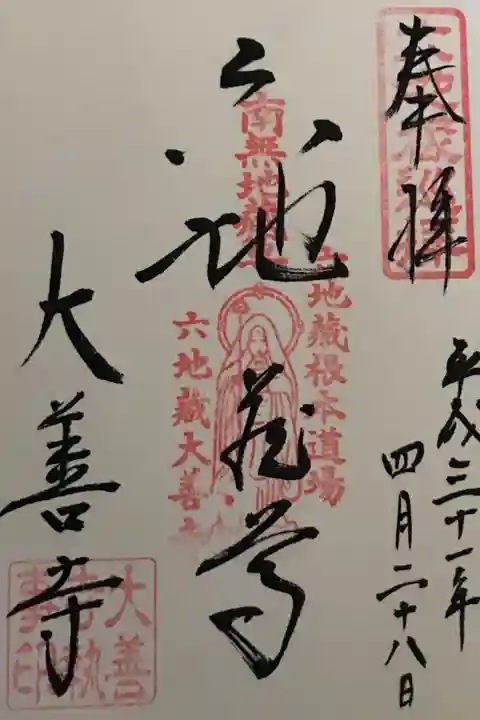 奉拝
平成三十一年
四月二十八日
六地蔵尊
南無地蔵
六地蔵根本道場
六地蔵大善寺
大善寺
大善寺執事印